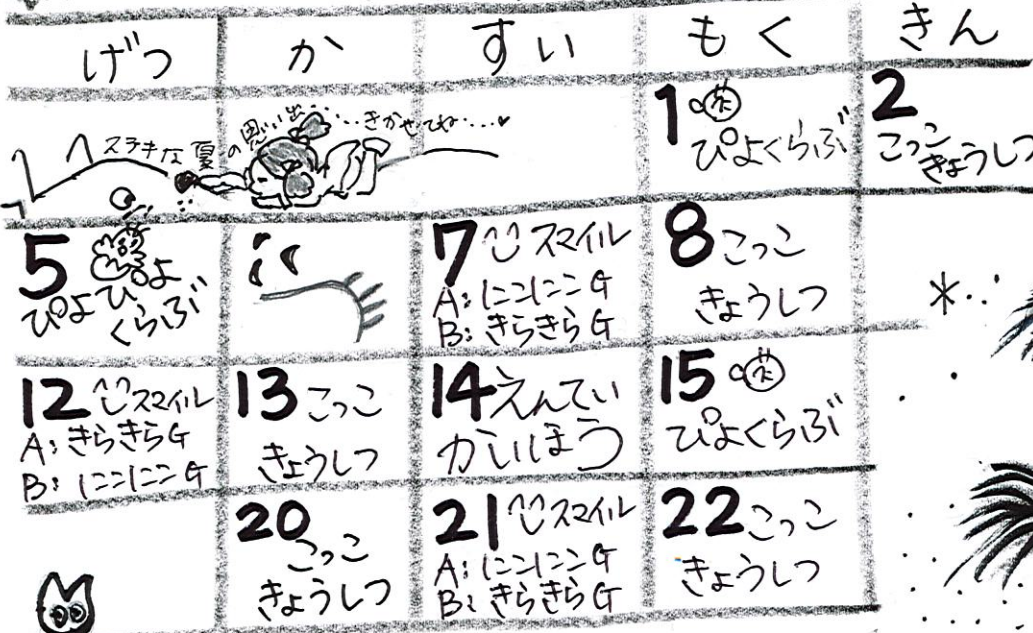 げつ か すい もく きん
ステキな夏の思い出・・・きかせてね・・・♥
1
ぴよくらぶ
2
こっこ
きょうしつ
5
ぴよぴよ
くらぶ
7 スマイル
A: にこにこG
B: きらきらG
8 こっこ
きょうしつ
12 スマイル
A: きらきらG
B: にこにこG
13 こっこ
きょうしつ
14 えんてい
かいほう
15
ぴよくらぶ
20
こっこ
きょうしつ
21 スマイル
A: にこにこG
B: きらきらG
22 こっこ
きょうしつ